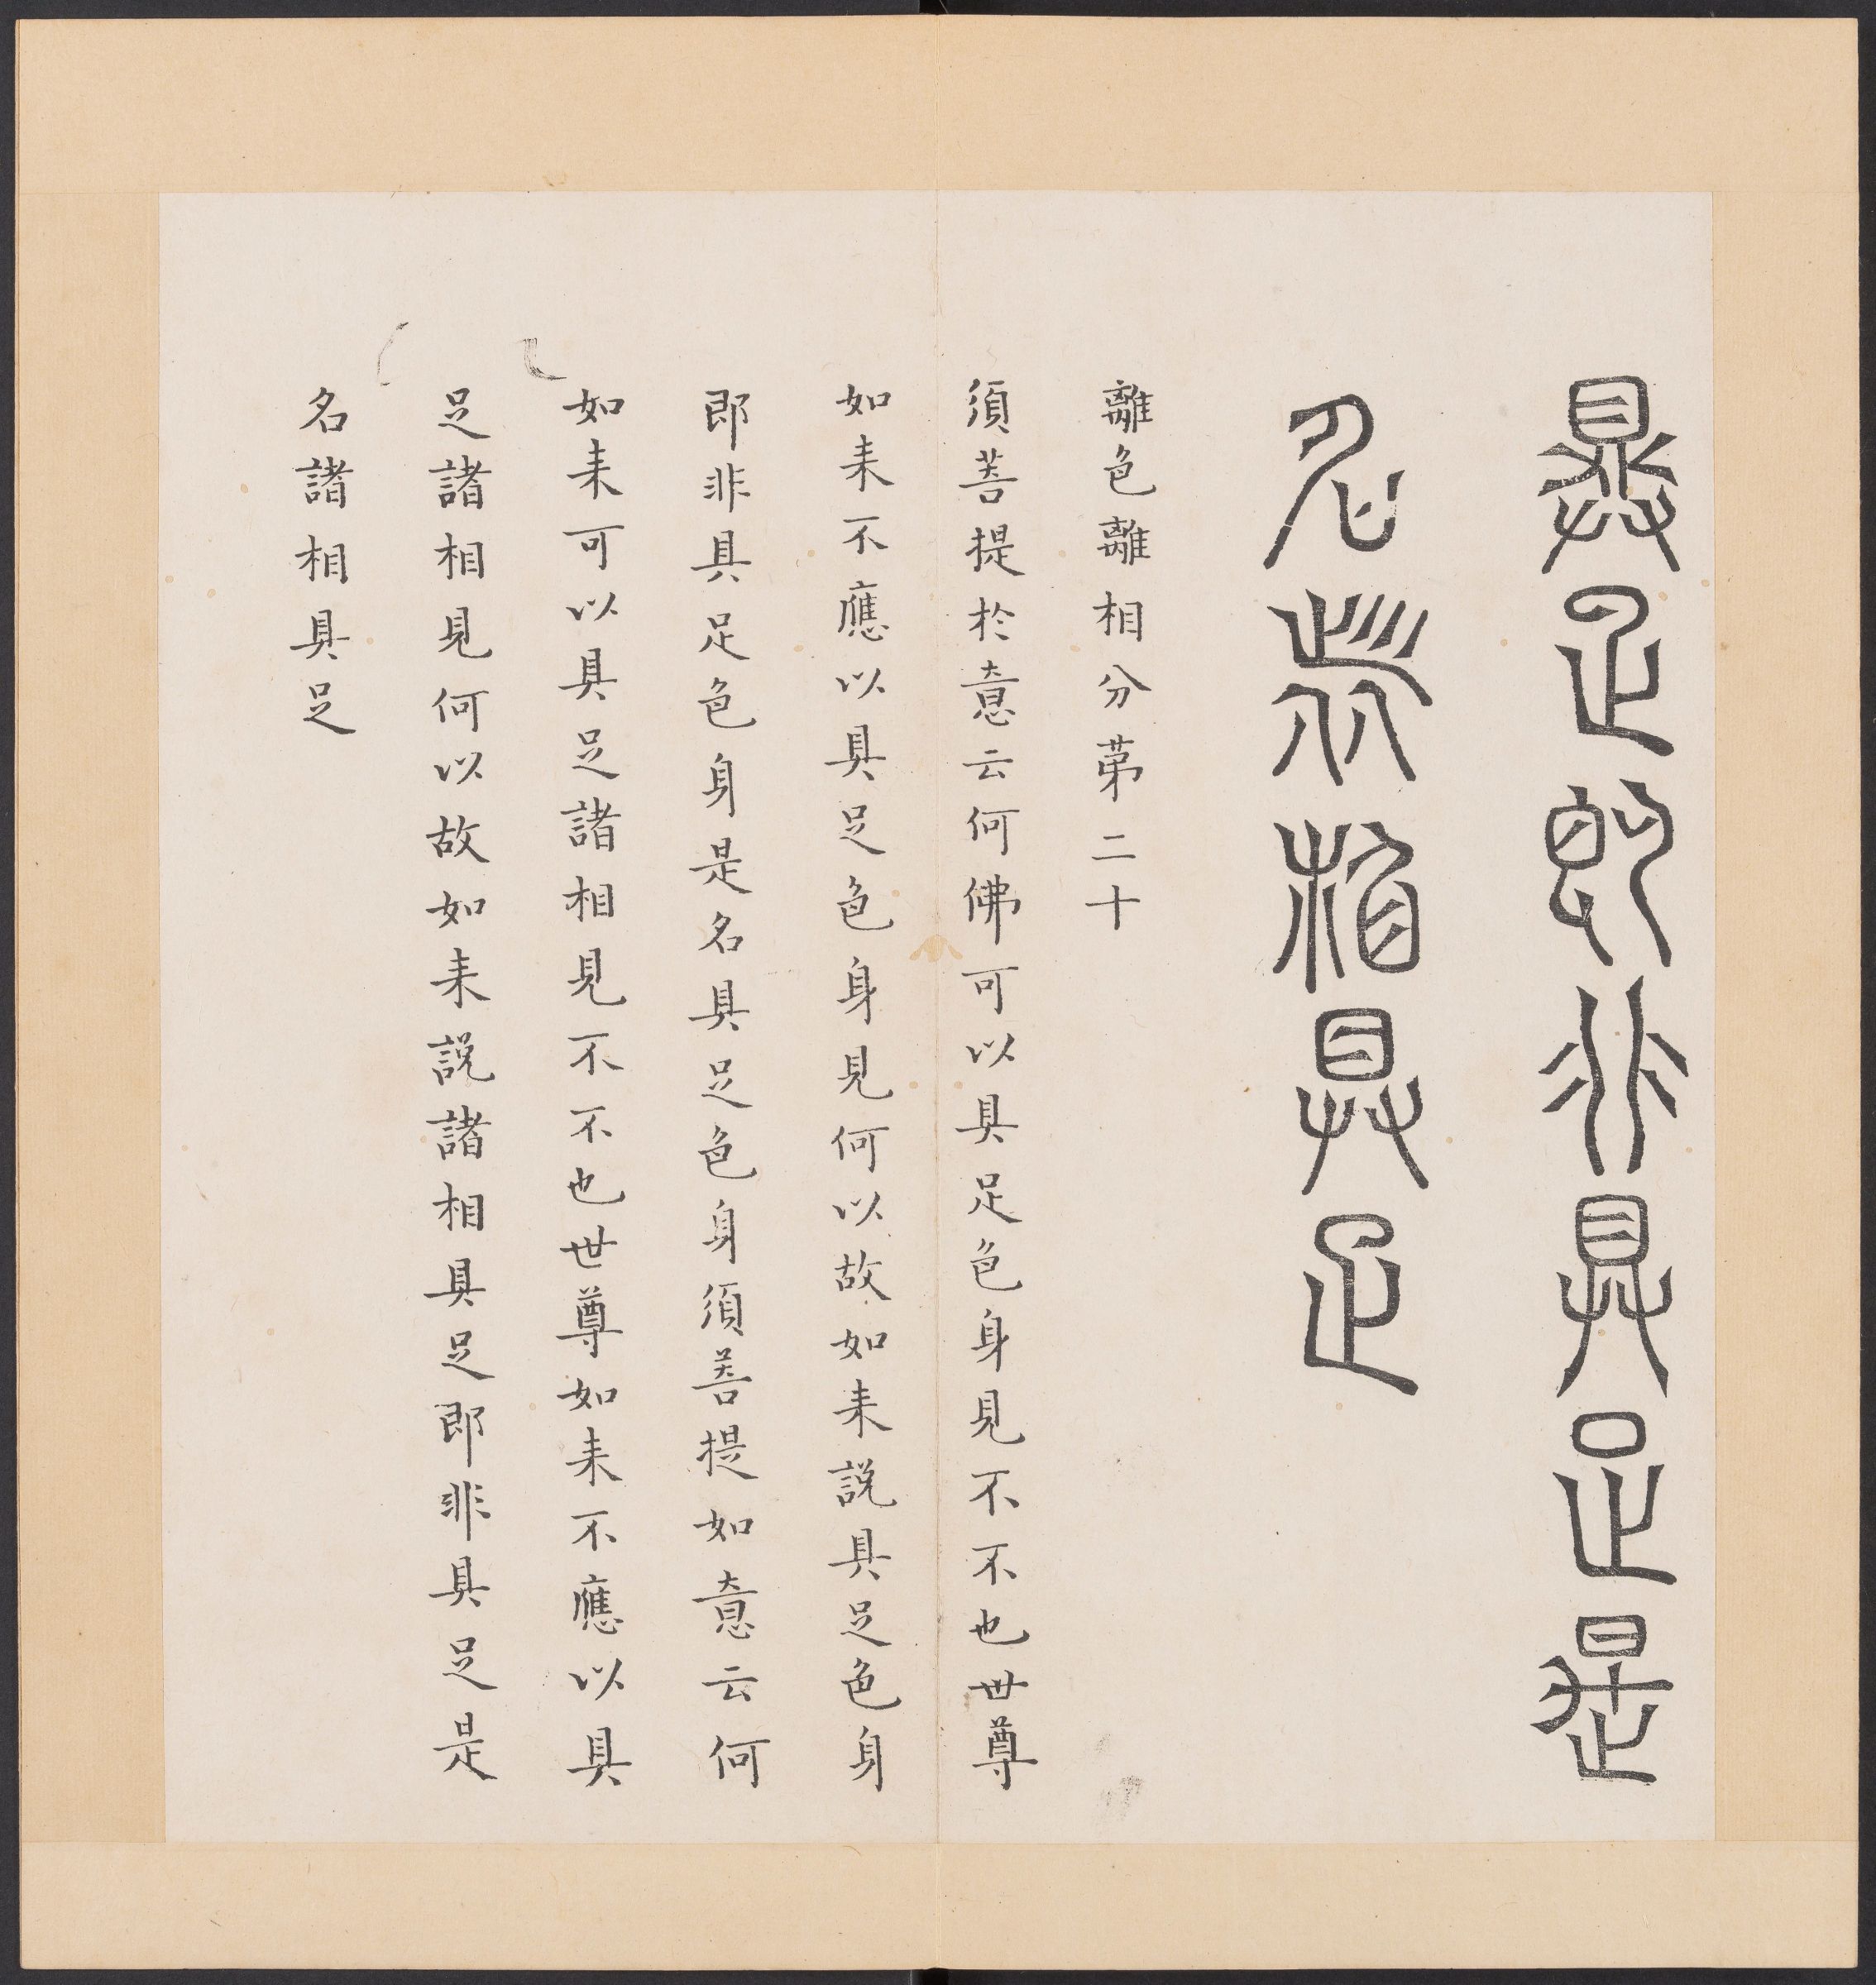 具足即非具足是
名諸相具足
離色離相分苐二十
須菩提於意云何佛可以具足色身見不不也世尊
如来不應以具足色身見何以故如来説具足色身
即非具足色身是名具足色身須菩提如意云何
如来可以具足諸相見不不也世尊如来不應以具
足諸相見何以故如来説諸相具足即非具足是
名諸相具足